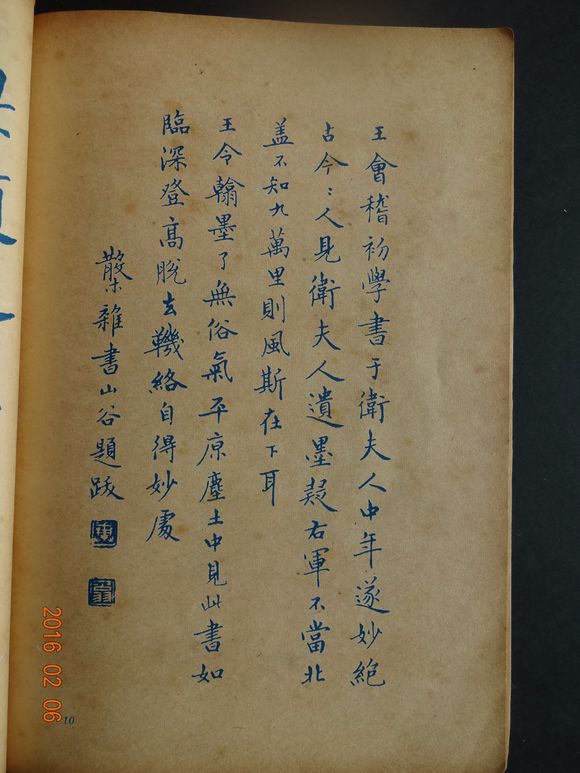 王會稽初學書于衛夫人中年遂妙絕
古今〻人見衛夫人遺墨疑右軍不當北
盖不知九萬里則風斯在下耳
王令翰墨了無俗氣平原塵土中見此書如
臨深登高脫去鞿絡自得妙處
槃雜書山谷題跋
10
2016 02 06